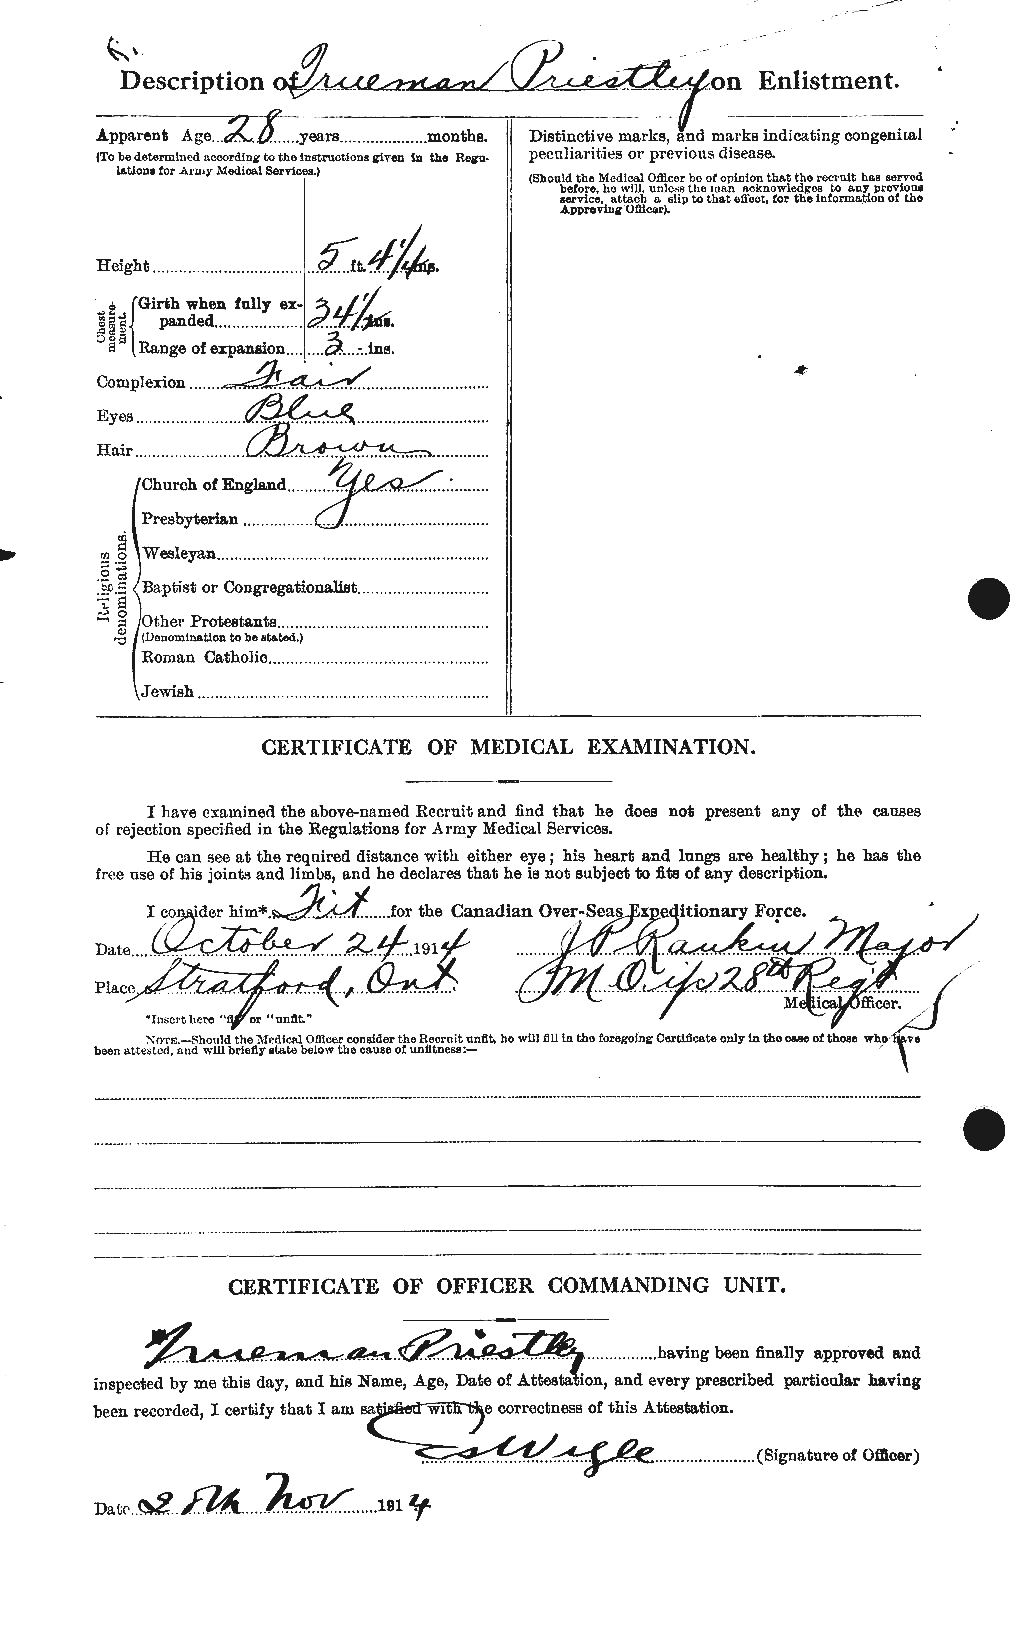 Description of Trueman Priestley on Enlistment.
Apparent Age 28 years months.
(To be determined according to the instructions given in the Regu-
lations for Army Medical Services.)
Height 5 ft. 4 1/4 ins.
Chest measure-
ment.
Girth when fully ex-
panded 34 1/2 ins.
Range of expansion 3 ins.
Complexion Fair
Eyes Blue
Hair Brown
Religious denominations.
Church of England Yes
Presbyterian
Wesleyan
Baptist or Congregationalist
Other Protestants
(Denomination to be stated.)
Roman Catholic
Jewish
Distinctive marks, and marks indicating congenital
peculiarities or previous disease.
(Should the Medical Officer be of opinion that the recruit has served
before, he will, unless the man acknowledges to any previous
service, attach a slip to that effect, for the information of the
Approving Officer).
CERTIFICATE OF MEDICAL EXAMINATION.
I have examined the above-named Recruit and find that he does not present any of the causes
of rejection specified in the Regulations for Army Medical Services.
He can see at the required distance with either eye; his heart and lungs are healthy; he has the
free use of his joints and limbs, and he declares that he is not subject to fits of any description.
I consider him* Fit for the Canadian Over-Seas Expeditionary Force.
Date October 24 1914 J P Rankin Major
Place Stratford, Ont. M O i/c 28th Regt
Medical Officer.
*Insert here "fit" or "unfit."
NOTE.—Should the Medical Officer consider the Recruit unfit, he will fill in the foregoing Certificate only in the case of those who have
been attested, and will briefly state below the cause of unfitness:—
CERTIFICATE OF OFFICER COMMANDING UNIT.
Trueman Priestley having been finally approved and
inspected by me this day, and his Name, Age, Date of Attestation, and every prescribed particular having
been recorded, I certify that I am satisfied with the correctness of this Attestation.
ES Wigle (Signature of Officer)
Date 28th Nov 1914